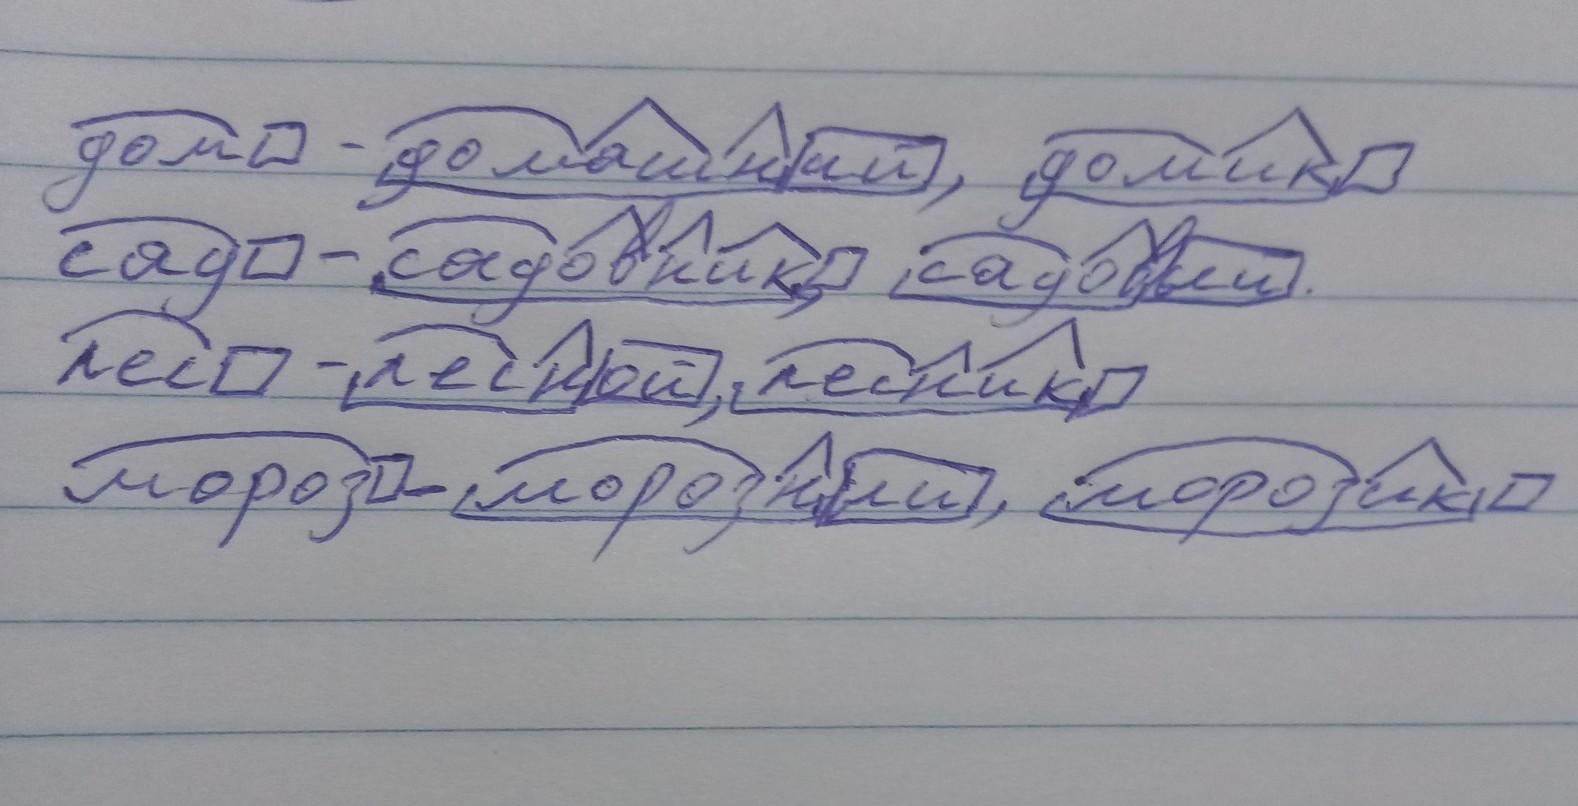 дом - домашний, домик
сад - садовник, садовый.
лес - лесной, лесник
мороз - морозный, морозик